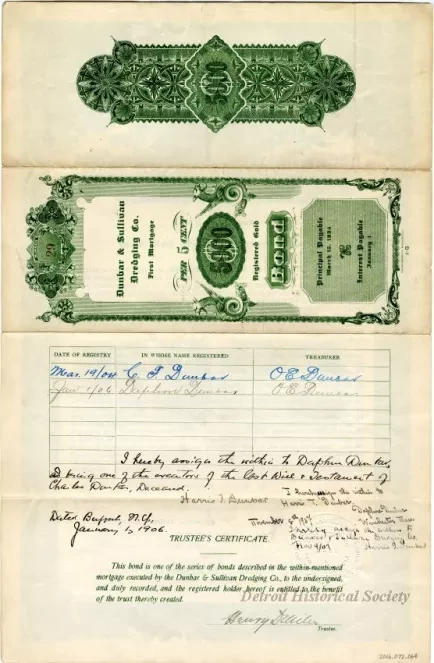 5000
Dunbar & Sullivan
Dredging Co.
First Mortgage
5 PER CENT
5000
Registered Gold
Bond
Principal Payable
March 15, 1924
Interest Payable
January 1
29
DATE OF REGISTRY IN WHOSE NAME REGISTERED TREASURER
Mar. 19/04 C. F. Dunbar O E Dunbar
Jan 1/06 Daphne Dunbar O E Dunbar
I hereby assign the within to Daphne Dunbar,
being one of the executors of the Last Will & Testament of
Charles Dunbar, Deceased.
Harris T. Dunbar
Dated Buffalo, N.Y.,
January 1, 1906.
I hereby assign the within to
Harris T. Dunbar
Daphne Dunbar
November 6th 1907
I hereby assign the within to
Dunbar & Sullivan Dredging Co
Nov 9/07 Harris T. Dunbar
TRUSTEE'S CERTIFICATE.
This bond is one of the series of bonds described in the within-mentioned
mortgage executed by the Dunbar & Sullivan Dredging Co., to the undersigned,
and duly recorded, and the registered holder hereof is entitled to the benefit
of the trust thereby created.
Henry
Trustee.
Detroit Historical Society